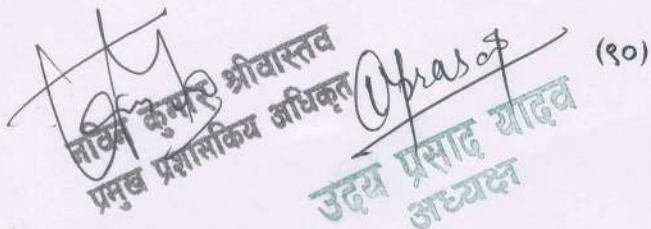 नविन कुमार श्रीवास्तव
प्रमुख प्रशासकिय अधिकृत
Uprasad
उदय प्रसाद यादव
अध्यक्ष
(९०)